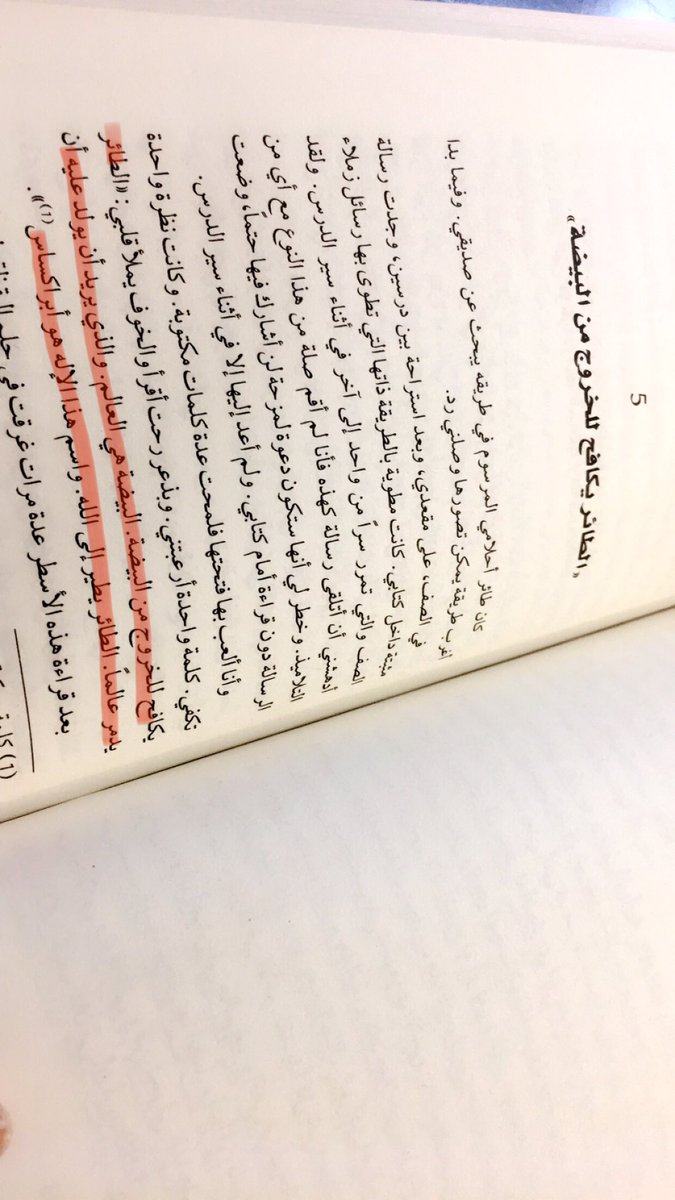 5
«الطائر يكافح للخروج من البيضة»
كان طائر أحلامي المرسوم في طريقه يبحث عن صديقي. وفيما بدا
أغرب طريقة يمكن تصورها وصلني رد.
في الصف، على مقعدي، وبعد استراحة بين درسين، وجدت رسالة
مثبتة داخل كتابي. كانت مطوية بالطريقة ذاتها التي تطوى بها رسائل زملاء
الصف والتي تمرر سراً من واحد إلى آخر في أثناء سير الدرس. ولقد
أدهشني أن أتلقى رسالة كهذه فأنا لم أقم صلة من هذا النوع مع أي من
التلاميذ. وخطر لي أنها ستكون دعوة لمزحة لن أشارك فيها حتماً، وضعت
الرسالة دون قراءة أمام كتابي. ولم أعد إليها إلا في أثناء سير الدرس.
وأنا ألعب بها فتحتها فلمحت عدة كلمات مكتوبة. وكانت نظرة واحدة
تكفي. كلمة واحدة أرعبتني. وبذعر رحت أقرأ والخوف يملأ قلبي: «الطائر
يكافح للخروج من البيضة. البيضة هي العالم. والذي يريد أن يولد عليه أن
يدمر عالماً. الطائر يطير إلى الله. واسم هذا الإله هو أبراكساس(1)».
بعد قراءة هذه الأسطر عدة مرات غرقت في حلم
(1)